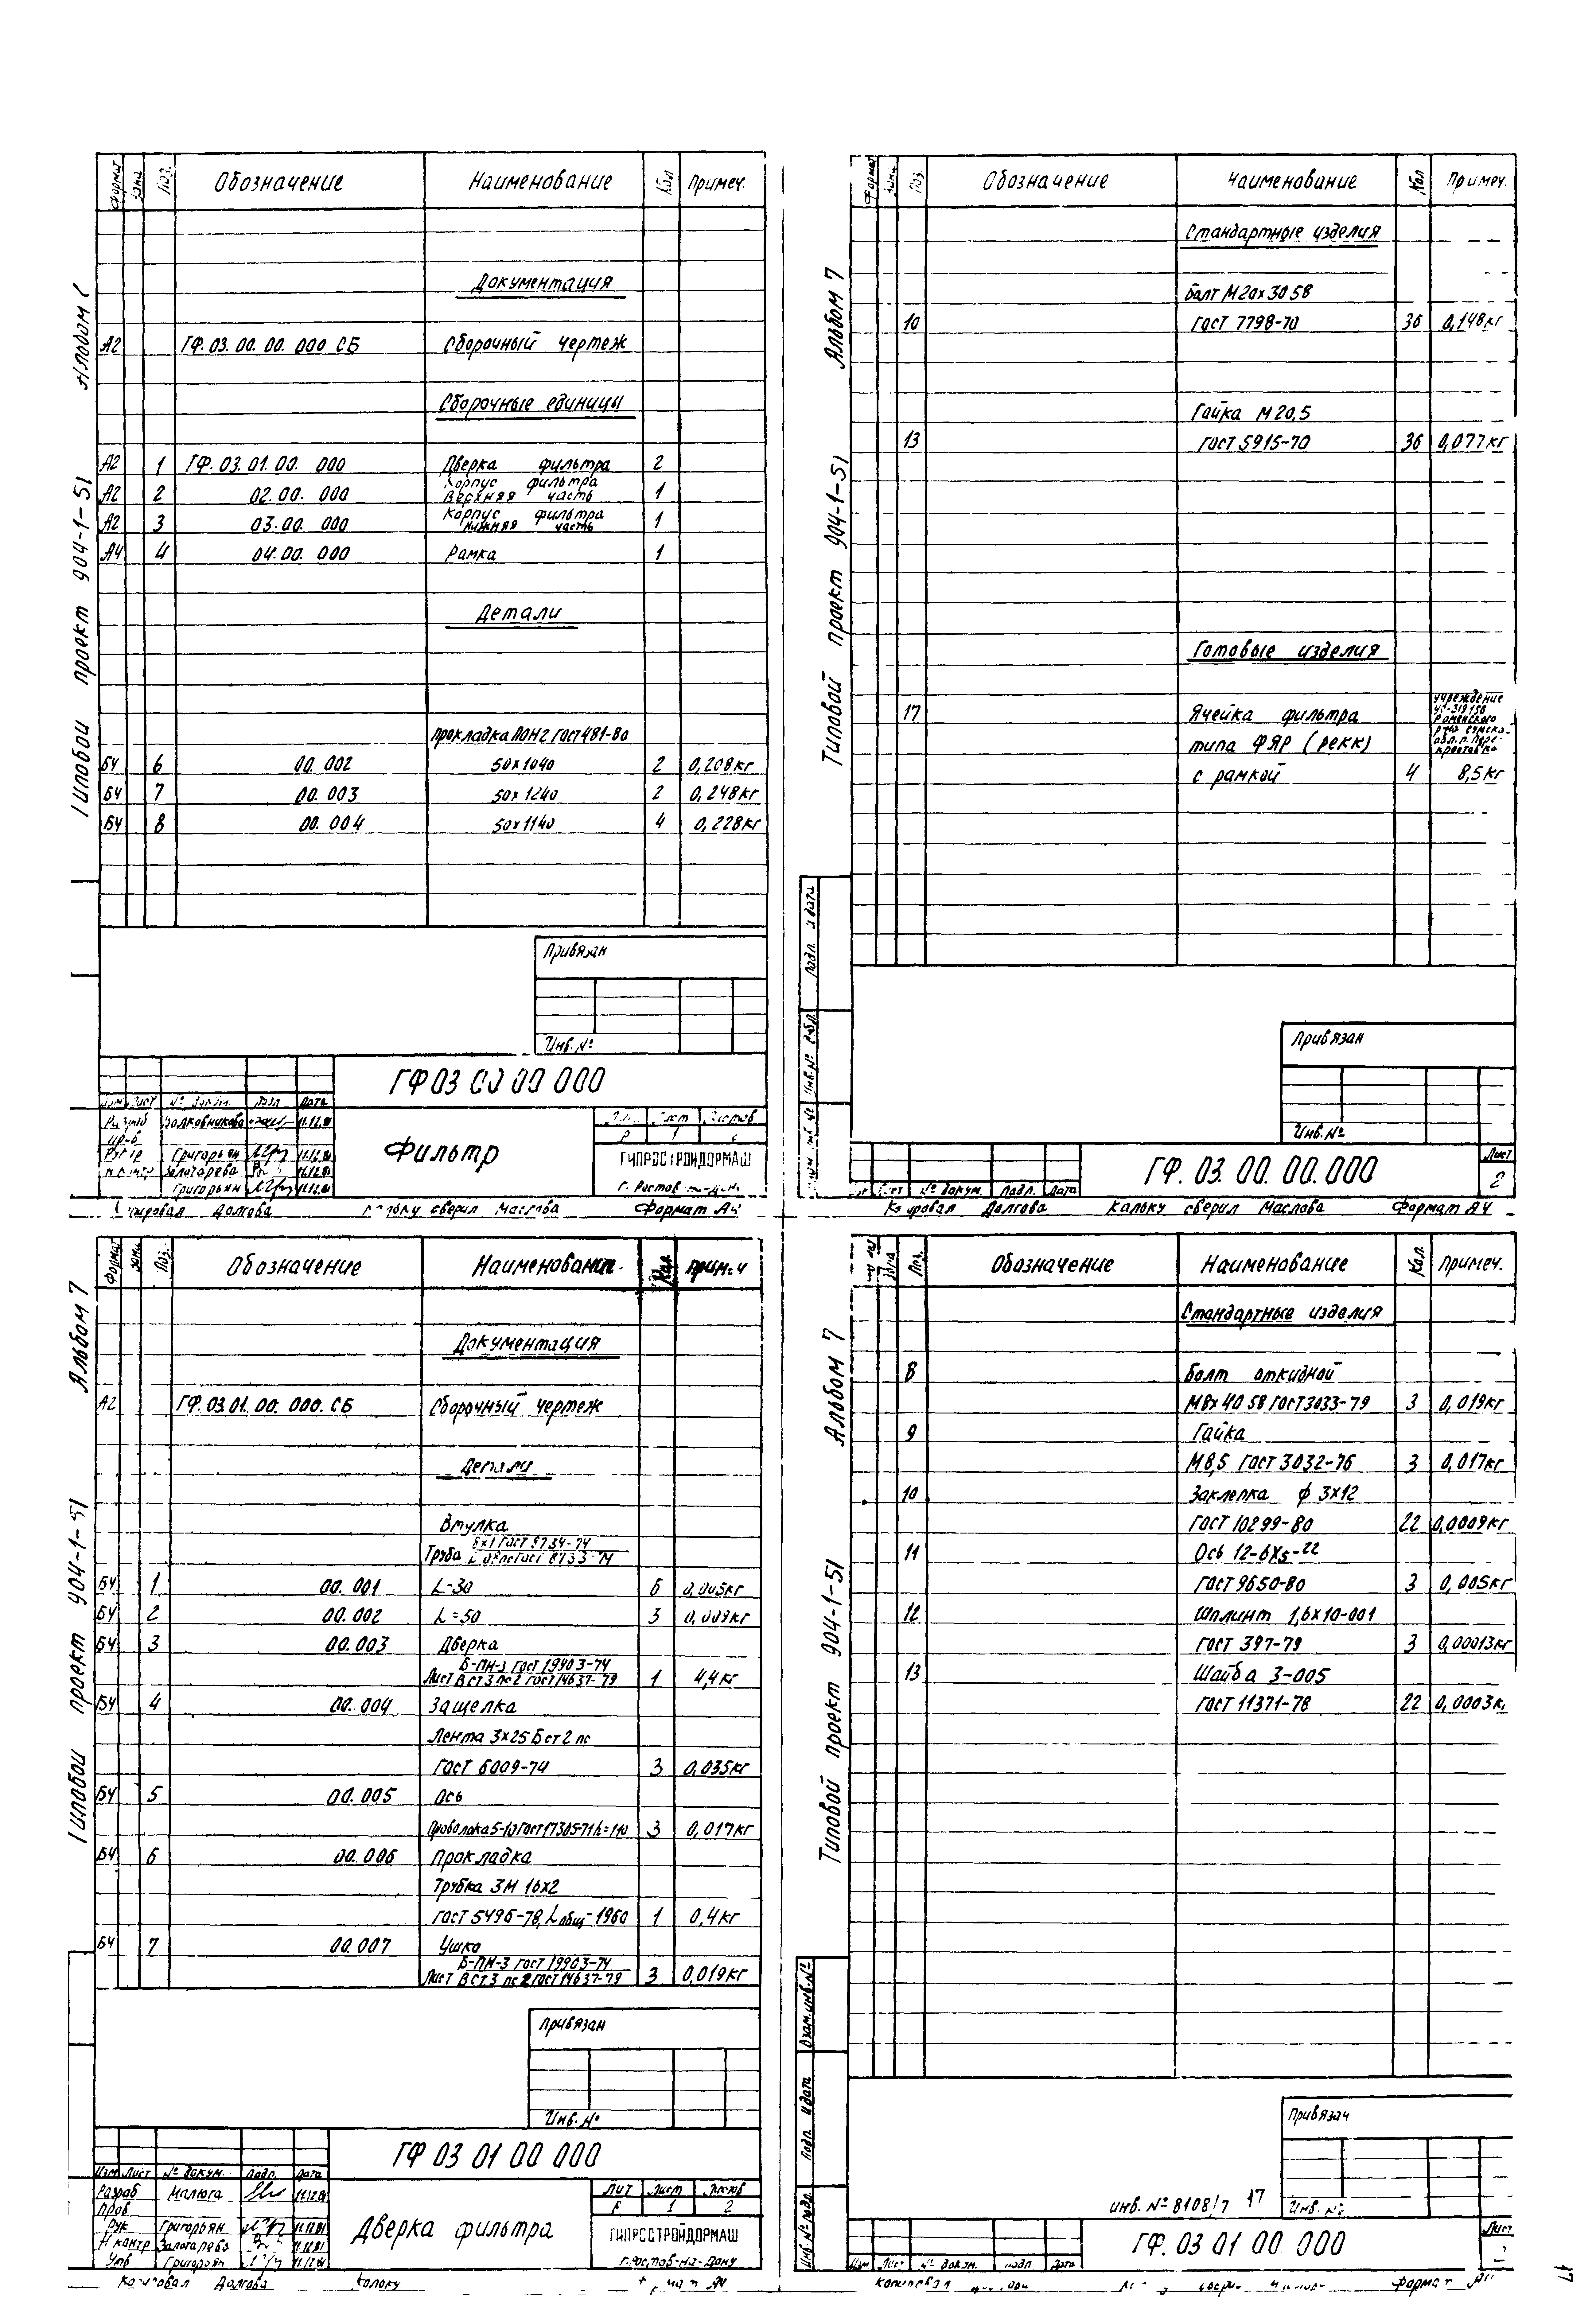 Формат Зона Поз. Обозначение Наименование Кол Примеч.
Документация
А2 ГФ.03.00.00.000 СБ Сборочный чертеж
Сборочные единицы
А2 1 ГФ.03.01.00. 000 Дверка фильтра 2
Корпус фильтра
А2 2 02.00. 000 Верхняя часть 1
Корпус фильтра
А2 3 03.00. 000 нижняя часть 1
А4 4 04.00. 000 Рамка 1
Детали
Прокладка ПОН2 ГОСТ 481-80
БЧ 6 00.002 50х1040 2 0,208кг
БЧ 7 00.003 50х1240 2 0,248кг
БЧ 8 00.004 50х1140 4 0,228кг
Альбом
Типовой проект 904-1-51
Привязан
Инв.№
ГФ 03 00 00 000
Лист Дата
Григорьян 11.12.81
Золотарева 11.12.81
Григорьян 11.12.81
Фильтр
Р 1
ГИПРОСТРОЙДОРМАШ
г. Ростов-на-Дону
Копировал Долгова Кальку сверил Маслова Формат А4
Формат Зона Поз Обозначение Наименование Кол Примеч.
Стандартные изделия
Болт М20х30 58
10 ГОСТ 7798-70 36 0,148кг
Гайка М20,5
13 ГОСТ 5915-70 36 0,077кг
Готовые изделия
17 Ячейка фильтра
типа ФЯР (рекк)
с рамкой 4 8,5кг
учреждение
Роменского
Альбом 7
Типовой проект 904-1-51
Подп. и дата
Привязан
Инв.№
ГФ. 03. 00. 00.000
Лист
2
Лист № докум. Подп. Дата
Копировал Долгова Кальку сверил Маслова Формат А4
Формат Зона Поз. Обозначение Наименование Кол. Примеч
Документация
А2 ГФ.03.01.00.000.СБ Сборочный чертеж
Детали
Втулка
Труба
БЧ 1 00.001 L-30 6 0,005кг
БЧ 2 00.002 L=50 3 0,009кг
БЧ 3 00.003 Дверка
Б-ПН-3 ГОСТ 19903-74
Лист ВСт3 пс2 ГОСТ 14637-79 1 4,4кг
БЧ 4 00.004 Защелка
Лента 3х25 Бст2пс
ГОСТ 6009-74 3 0,035кг
БЧ 5 00.005 Ось
Проволока 5-10 ГОСТ 17305-71 L=110 3 0,017кг
БЧ 6 00.006 Прокладка
Трубка 3М 16х2
ГОСТ 5496-78, L общ-1960 1 0,4кг
БЧ 7 00.007 Ушко
Б-ПН-3 ГОСТ 19903-74
Лист ВСт3 пс2 ГОСТ 14637-79 3 0,019кг
Альбом 7
Типовой проект 904-1-51
Привязан
Инв.№
ГФ 03 01 00 000
Изм Лист № докум. Подп. Дата
Разраб Малюга 11.12.81
Пров
Рук Григорьян 11.12.81
Н контр Золотарева 11.12.81
Утв Григорьян 11.12.81
Дверка фильтра
Лит Лист Листов
Р 1 2
ГИПРОСТРОЙДОРМАШ
г.Ростов-на-Дону
Копировал Долгова Кальку Формат А4
Зона Поз. Обозначение Наименование Кол. Примеч.
Стандартные изделия
8 Болт откидной
М8х40 58 ГОСТ 3033-79 3 0,019кг
9 Гайка
М8,5 ГОСТ 3032-76 3 0,017кг
10 Заклепка ф 3х12
ГОСТ 10299-80 22 0,0009кг
11 Ось 12-6х5-22
ГОСТ 9650-80 3 0,005кг
12 Шплинт 1,6х10-001
ГОСТ 397-79 3 0,00013кг
13 Шайба 3-005
ГОСТ 11371-78 22 0,0003кг
Альбом 7
Типовой проект 904-1-51
Взам.инв.№
Подп. и дата
Инв.№ подл.
Привязан
инв.№ 8108/7 17
Инв.№
ГФ. 03 01 00 000
Лист
Изм Лист № докум. Подп Дата
Копировал Формат
17